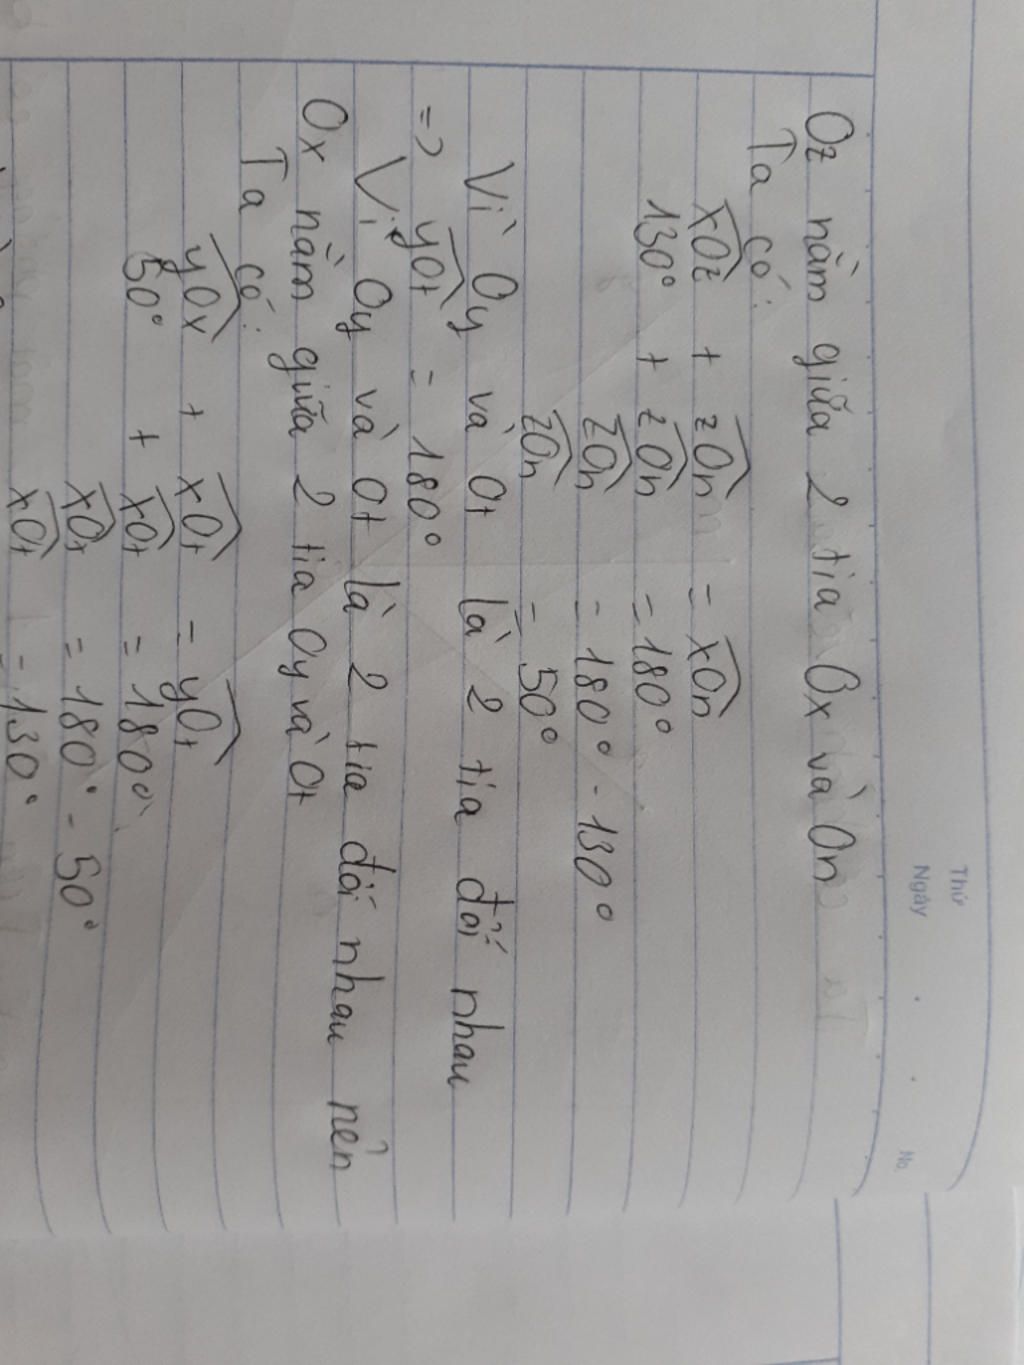 Thứ
Ngày
No.
Oz nằm giữa 2 tia Ox và On
Ta có:
xOz + zOn = xOn
130° + zOn = 180°
zOn = 180° - 130°
zOn = 50°
Vì Oy và Ot là 2 tia đối nhau
=> yOt = 180°
Vì Oy và Ot là 2 tia đối nhau nên
Ox nằm giữa 2 tia Oy và Ot
Ta có:
yOx + xOt = yOt
50° + xOt = 180°
xOt = 180° - 50°
xOt = 130°